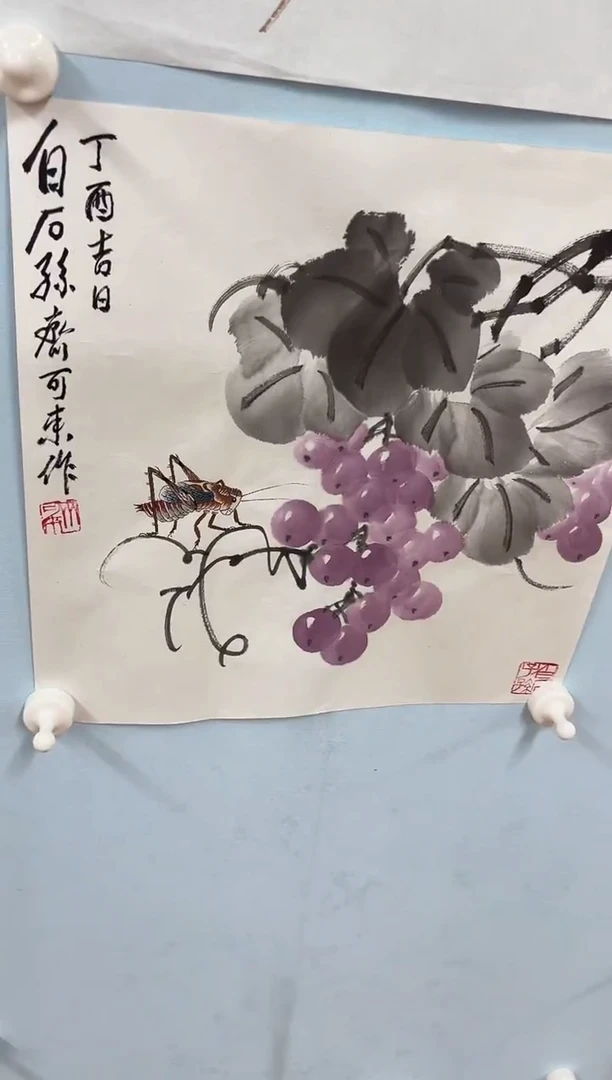 丁酉吉日
白石孙齊可来作